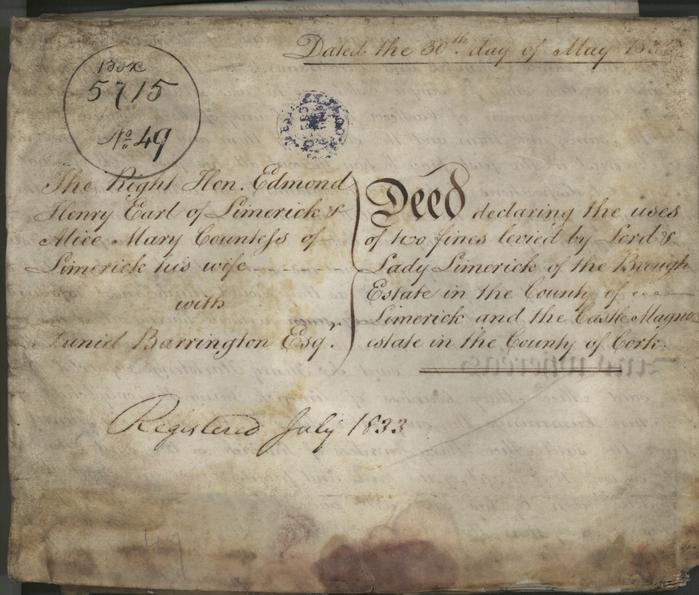 Dated the 30th day of May
Book
5715
No. 49
The Right Hon. Edmond
Henry Earl of Limerick &
Alice Mary Countess of
Limerick his wife
with
Daniel Barrington Esqr.
Deed declaring the uses
of two fines levied by Lord &
Lady Limerick of the Brough
Estate in the County of
Limerick and the Castle Magne
estate in the County of Cork.
Registered July 1833